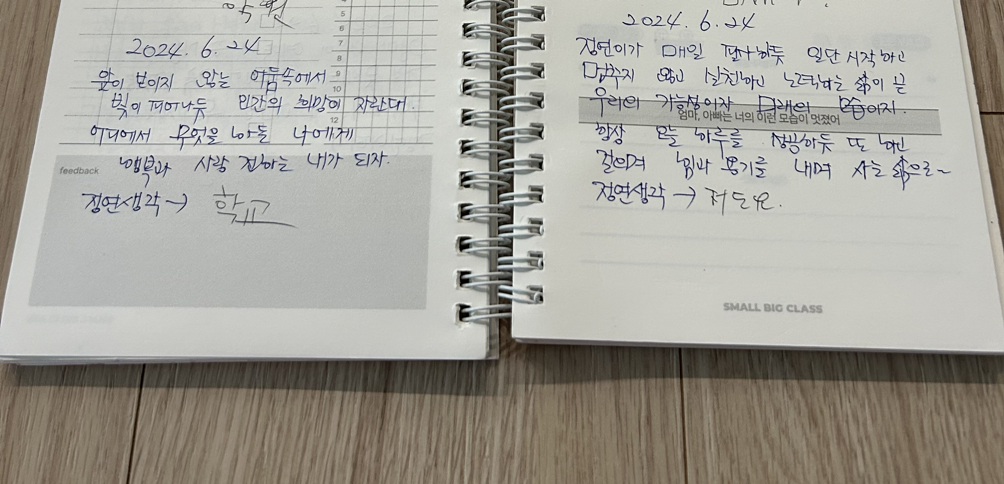 2024. 6. 24
앞이 보이지 않는 어둠속에서
빛이 피어나듯 인간의 희망이 자란다.
어디에서 무엇을 하든 나에게
행복과 사랑 전하는 내가 되자.
feedback
정연생각 → 학교
5
6
7
8
9
10
12
2024. 6. 24
정연이가 매일 하듯 일단 시작하고
멈추지 않고 실천하고 노력하는 삶이 곧
우리의 가능성이자 미래의 모습이지.
엄마, 아빠는 너의 이런 모습이 멋졌어
항상 오늘 하루를 성공하듯 또 한번
걸으며 힘과 용기를 내며 사는 삶으로~
정연생각 → 저도요.
SMALL BIG CLASS